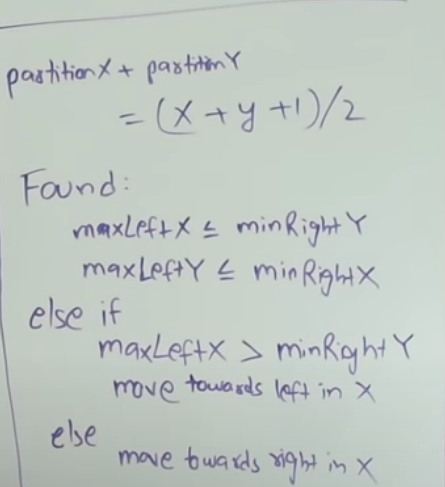 partitionX + partitionY
= (x + y + 1)/2
Found:
maxLeftX ≤ minRightY
maxLeftY ≤ minRightX
else if
maxLeftX > minRightY
move towards left in X
else
move towards right in X